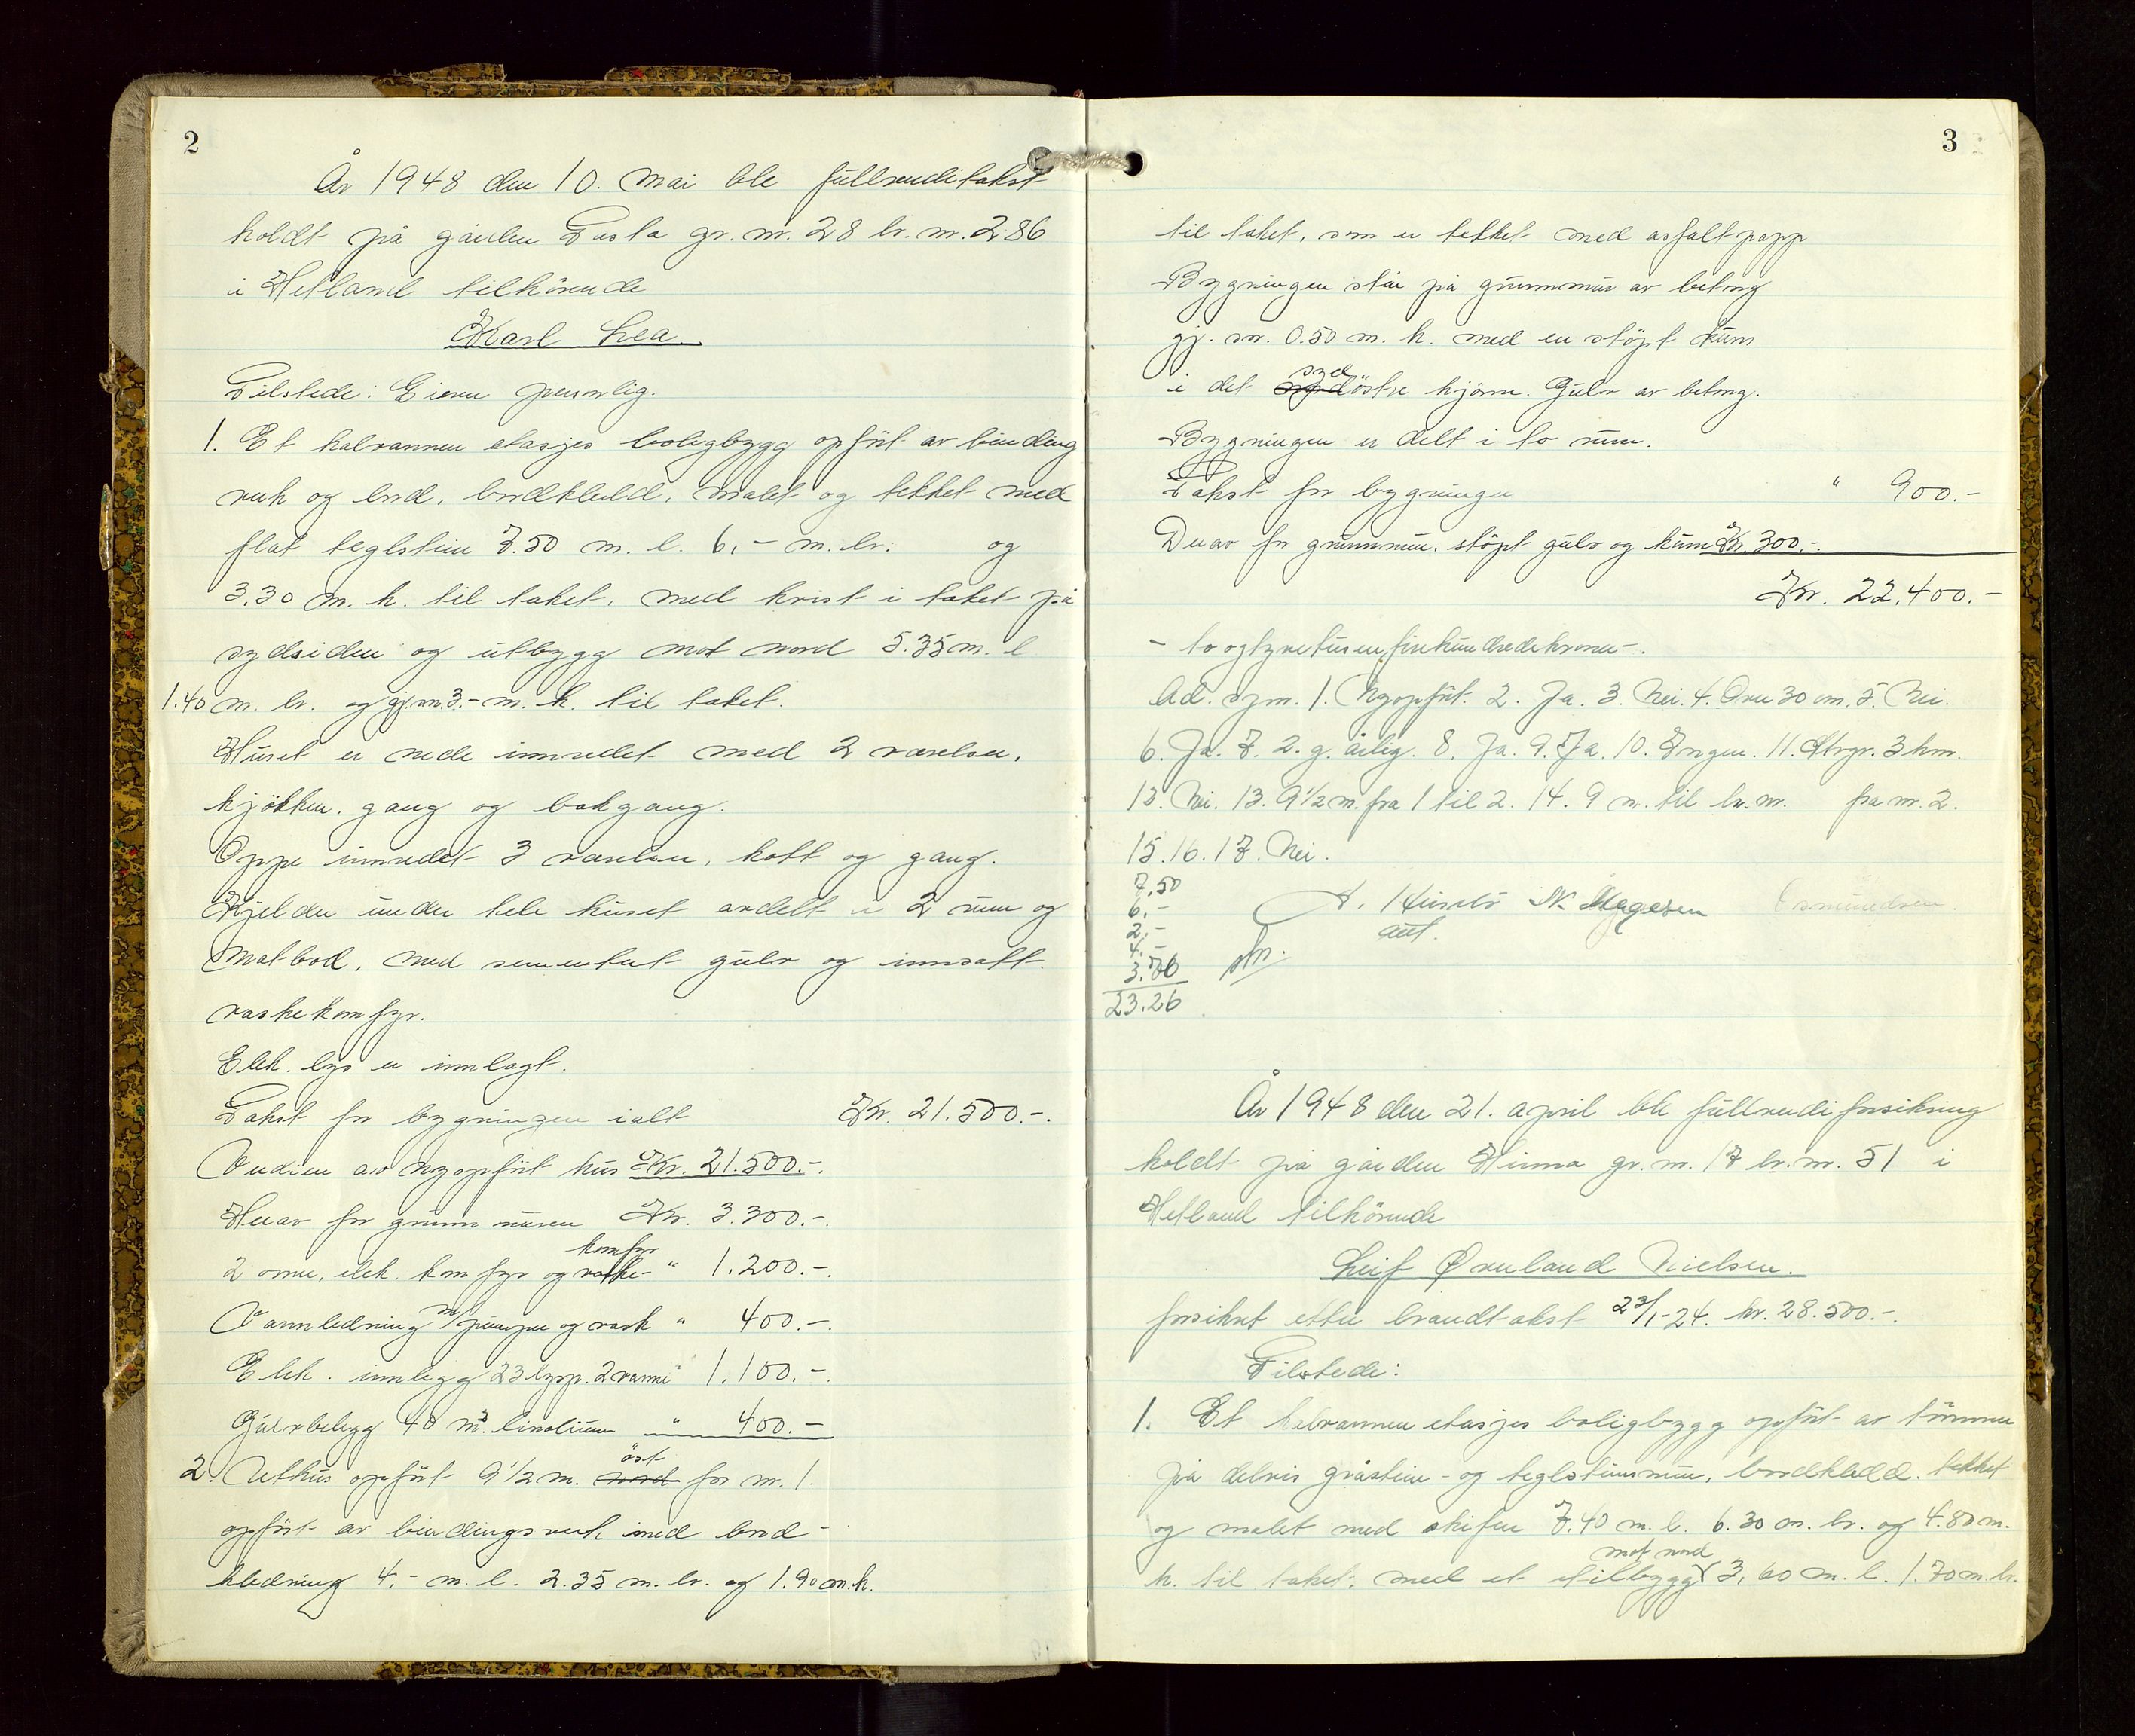 2
År 1948 den 10. mai ble fullverditakst
holdt på gården Tasta gr. nr. 28 br. nr. 286
i Hetland tilhörende
Karl Lea
Tilstede: Eieren personlig.
1. Et halvannen etasjes boligbygg opfört av binding
verk og bord, bordkledd, malet og tekket med
flat teglstein 7.50 m. l. 6,- m. br. og
3.30 m. h. til taket, med kvist i taket på
sydsiden og utbygg mot nord 5.35 m. l
1.40 m. br. og gj.sn. 3.- m. h. til taket.
Huset er nede innredet med 2 værelser,
kjökken, gang og bakgang.
Oppe innredet 3 værelser, kott og gang.
Kjelder under hele huset avdelt i 2 rum og
matbod, med sementert gulv og innsatt
vaskekomfyr.
Elek. lys er innlagt.
Takst for bygningen ialt Kr. 21.500.-.
Verdien av nyopfört hus Kr. 21.500.-.
Herav for grunnmuren Kr. 3.300.-.
2 ovner, elek. komfyr og vaske- komfyr " 1.200.-.
Vannledning m/ pumpe og vask " 400.-.
Elek. innlegg 23 lysp. 2 varme " 1.100.-.
Gulvbelegg 40 m² linolium " 400.-
2. Uthus opfört 9 1/2 m. nord öst for nr. 1.
opfört av bindingsverk med bord-
kledning 4,- m. l. 2.35 m. br. og 1.90 m. h.
3
til taket, som er tekket med asfaltpapp
Bygningen står på grunnmur av betong
gj. sn. 0.50 m. h. med en stöpt kum
i det syd östre hjörne. Gulv av betong.
Bygningen er delt i to rum.
Takst for bygningen " 900.-
Derav for grunnmur, stöpt gulv og kum Kr. 300.-.
Kr. 22.400.-
- toogtyvetusenfirehundredekroner -.
Ad. spm. 1. Nyopfört. 2. Ja. 3. Nei. 4. Over 30 cm. 5. Nei.
6. Ja. 7. 2. g. årlig. 8. Ja. 9. Ja. 10. Ingen. 11. Stvgr. 3 km.
12. Nei. 13. 9 1/2 m. fra 1 til 2. 14. 9 m. til br. nr. fra nr. 2.
15. 16. 17. Nei.
7,50
6,-
2,-
4,-
3.76
23.26
N. Magesen
Osmundsen
År 1948 den 21. april ble fullverdiforsikring
holdt på gården Hinna gr. nr. 17 br. nr. 51 i
Hetland tilhörende
Leif Øveland Nielsen.
forsikret etter branntakst 23/1-24. kr. 28.500.-.
Tilstede:
1. Et halvannen etasjes boligbygg opfört av tömmer
på delvis gråstein- og teglsteinsmur, bordkledd, tekket
og malet med skifer 7.40 m. l. 6.30 m. br. og 4.80 m.
h. til taket, med et tilbygg mot nord 3,60 m. l. 1.70 m. br.